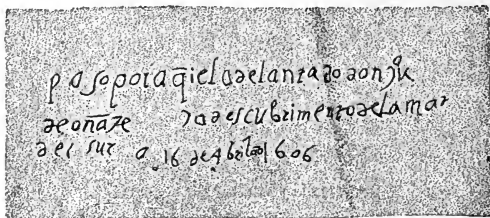 paso por aq̃i el adelantado don ju
de oñate descubrimento de la mar
del sur a 16 de Abril 1606